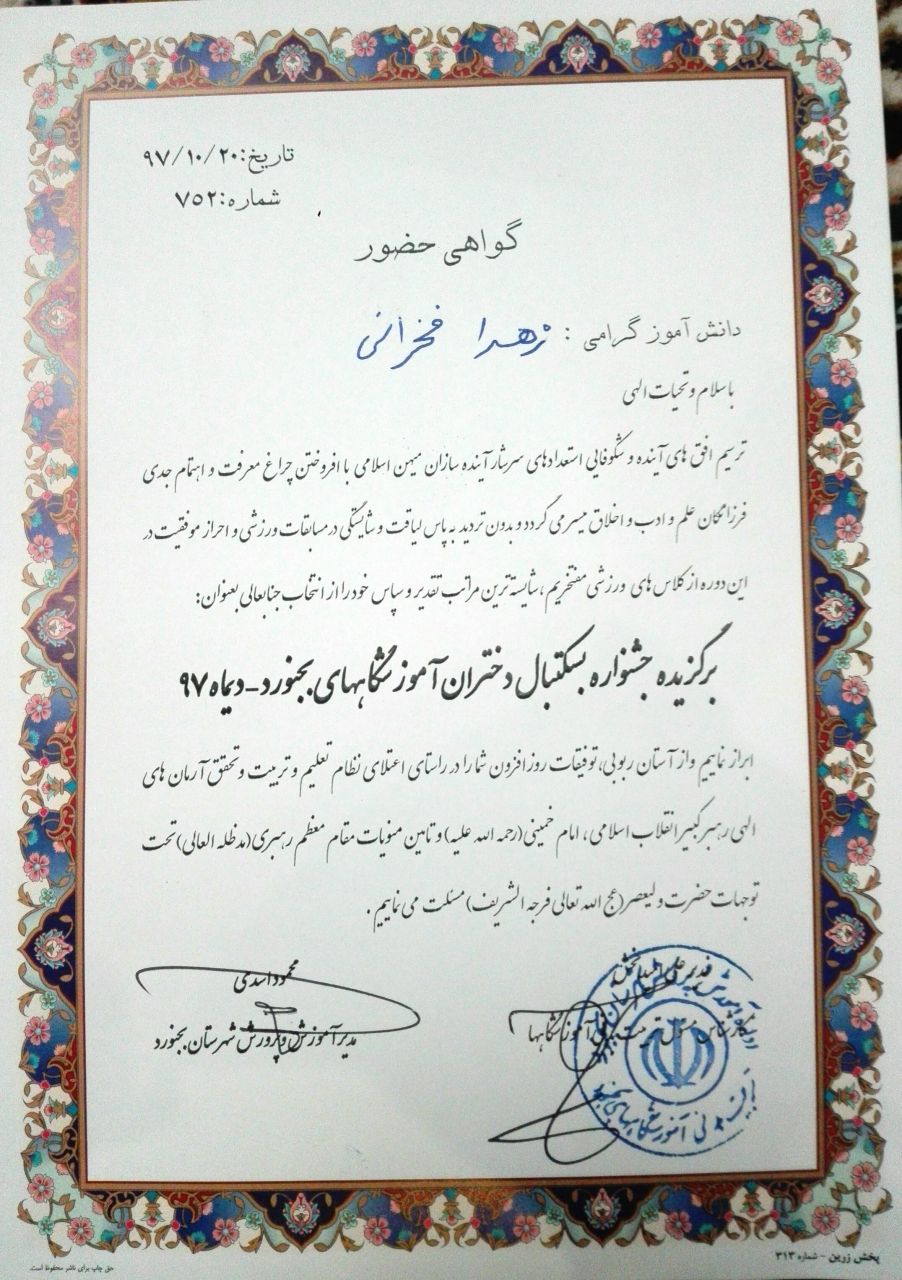 تاریخ:۹۷/۱۰/۲۰
شماره:۷۵۲
گواهی حضور
دانش آموز گرامی : زهرا فخرانی
با سلام و تحیات الهی
ترسیم افق های آینده و شکوفایی استعدادهای سرشار آینده سازان میهن اسلامی با افروختن چراغ معرفت و اهتمام جدی
فرزانگان علم و ادب و اخلاق میسر می گردد و بدون تردید به پاس لیاقت و شایستگی در مسابقات ورزشی و احراز موفقیت در
این دوره از کلاس های ورزشی مفتخریم ، شایسته ترین مراتب تقدیر و سپاس خود را از انتخاب جنابعالی بعنوان:
برگزیده جشنواره بسکتبال دختران آموزشگاههای بجنورد-دیماه ۹۷
ابراز نماییم و از آستان ربوبی، توفیقات روز افزون شما را در راستای اعتلای نظام تعلیم و تربیت و تحقق آرمان های
الهی رهبر کبیر انقلاب اسلامی ، امام خمینی(رحمه الله علیه) و تامین منویات مقام معظم رهبری(مدظله العالی) تحت
توجهات حضرت ولیعصر(عج الله تعالی فرجه الشریف) مسئلت می نماییم .
محمود اسدی
کارشناس مسئول تربیت بدنی آموزشگاهها
مدیر آموزش و پرورش شهرستان بجنورد
تربیت بدنی آموزشگاههای بجنورد
پخش زرین - شماره ۳۱۳
حق چاپ برای ناشر محفوظ است.